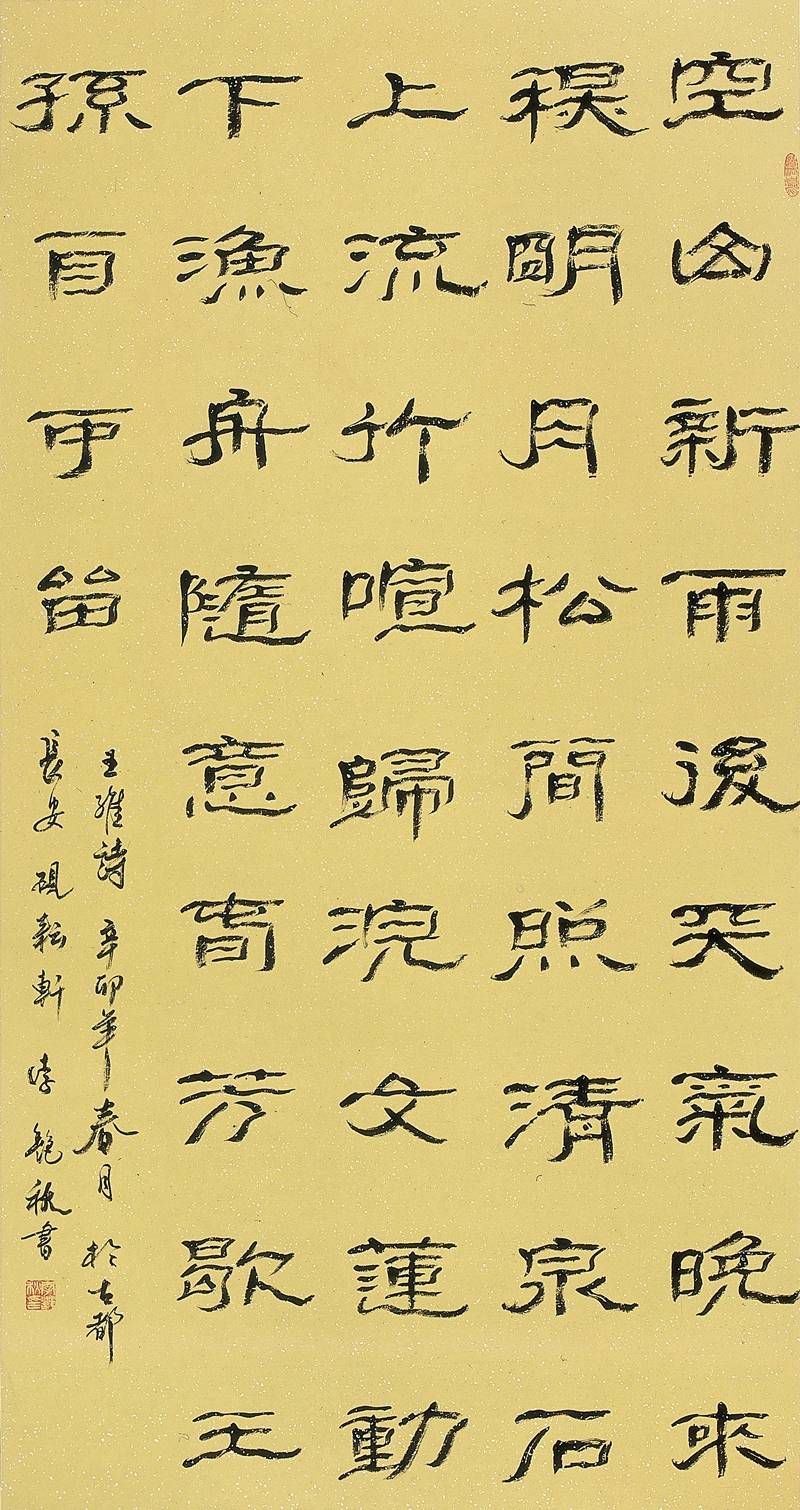 空山新雨後天氣晚來
秋明月松間照清泉石
上流竹喧歸浣女蓮動
下漁舟隨意春芳歇王
孫自可留
王維詩 辛卯年春月於古都
長安硯耘軒 李 秋書